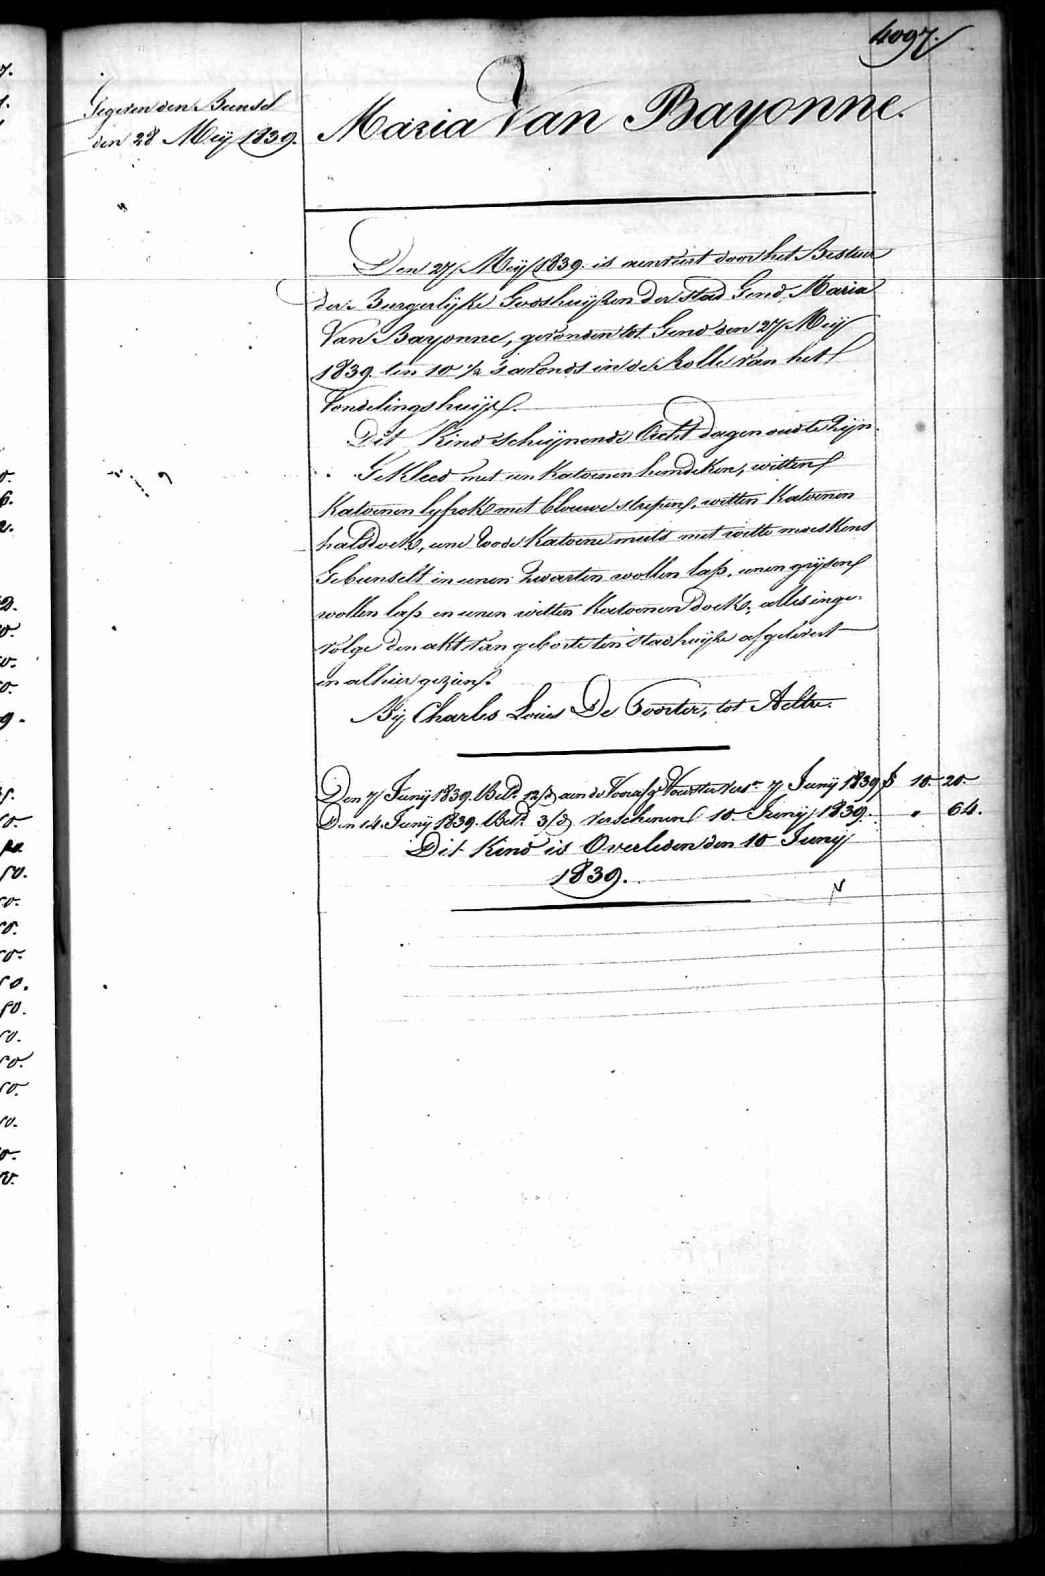 4097.
Gegeven den Bunsel
den 28 Meij 1839.
Maria Van Bayonne.
Den 27 Meij 1839. is aenveirt door het Bestuur
der Burgerlijke Godshuijsen der stad Gend, Maria
Van Bayonne, gevonden tot Gend den 27 Meij
1839. ten 10 ½ s'avonds in de Rolle van het
Vondelingshuijs.
Dit Kind schijnende Acht dagen oud te Zijn.
Gekleed met een Katoenen hemdeken, witten
Katoenen lyfrok met blouwe strepen, witten Katoenen
halsdoek, eene roode Katoene muts met witte
Gebunselt in eenen Zwarten wollen lap, eenen grijsen
wollen lap en eenen witten Katoenen Doek, alles inge-
volge den akt van geboorte ten stadhuijse afgelevert
en alhier gezien.
Bij Charles Louis De Poorter, tot Aeltre.
Den 7 Junij 1839. Betd. aen de Voorsz Voester Verst. 7 Junij 1839 10-20-
Den 14. Junij 1839. Betd. Verschenen 10 Junij 1839. " 64.
Dit Kind is Overleden den 10 Junij
1839.